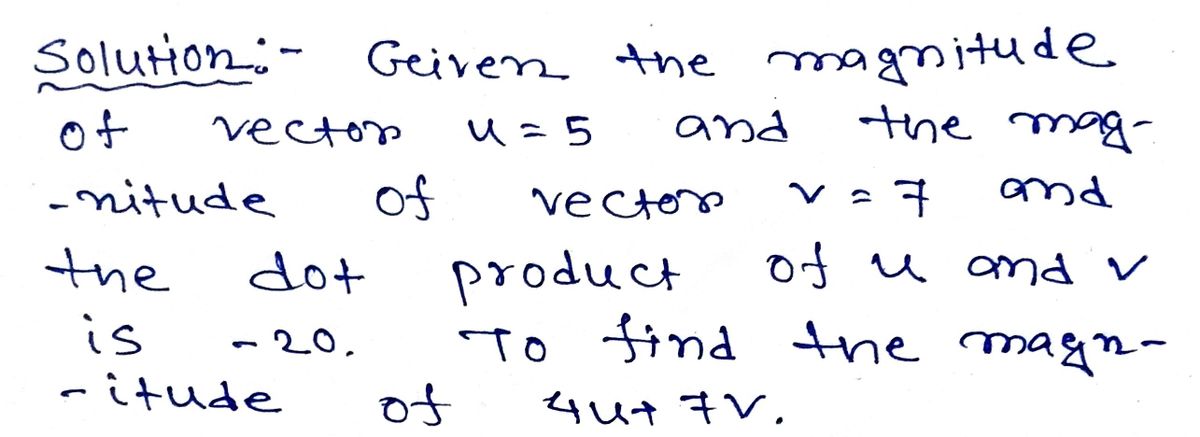 Solution:- Geiven the magnitude
of vector u = 5 and the mag-
-nitude of vector v = 7 and
the dot product of u and v
is -20. To find the magn-
-itude of 4u+7v.